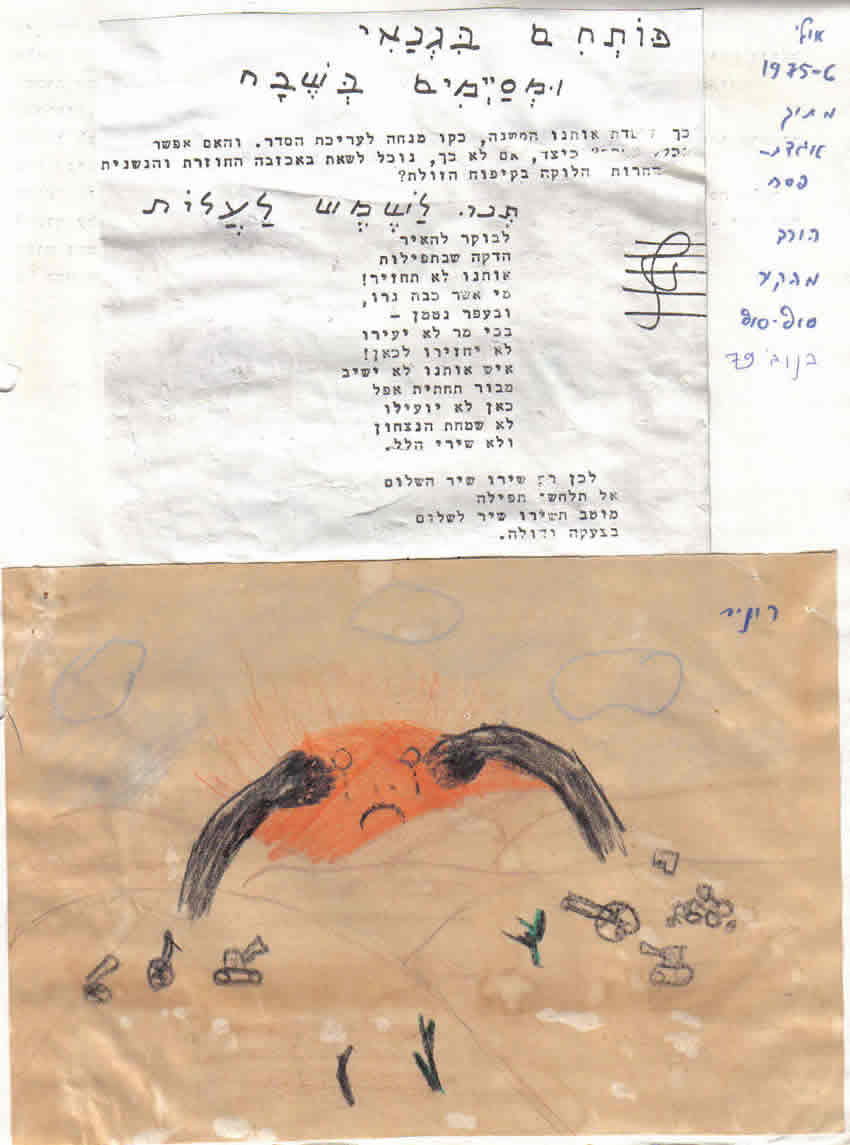 פּוֹתְחִים בִּגְנַאי
וּמְסַיְּימִים בְּשֶׁבַח
כך אותנו המשנה, בקו מנחה לעריכת הסדר. והאם אפשר
כיצד, אם לא כך, נוכל לשאת באכזבה החוזרת והנשנית
הלוקה בקיפוח הזולת?
תְּנו. לַשֶׁמֶשׁ לַעֲלוֹת
לבוקר להאיר
הזקה שבתפילות
אותנו לא תחזיר!
מי אשר כבה נרו,
ובעפר נטמן –
בכי מר לא יעירו
לא יחזירו לכאן!
איש אותנו לא ישיב
מבור תחתית אפל
כאן לא יועילו
לא שמחת הנצחון
ולא שירי הלל.
לכן רק שירו שיר השלום
אל תלחשי תפילה
מוטב תשירו שיר לשלום
בצעקה גדולה.
אולי
1975-6
מתוך
אגדת-
פסח
הורב
מהקיר
סוף-סוף
79